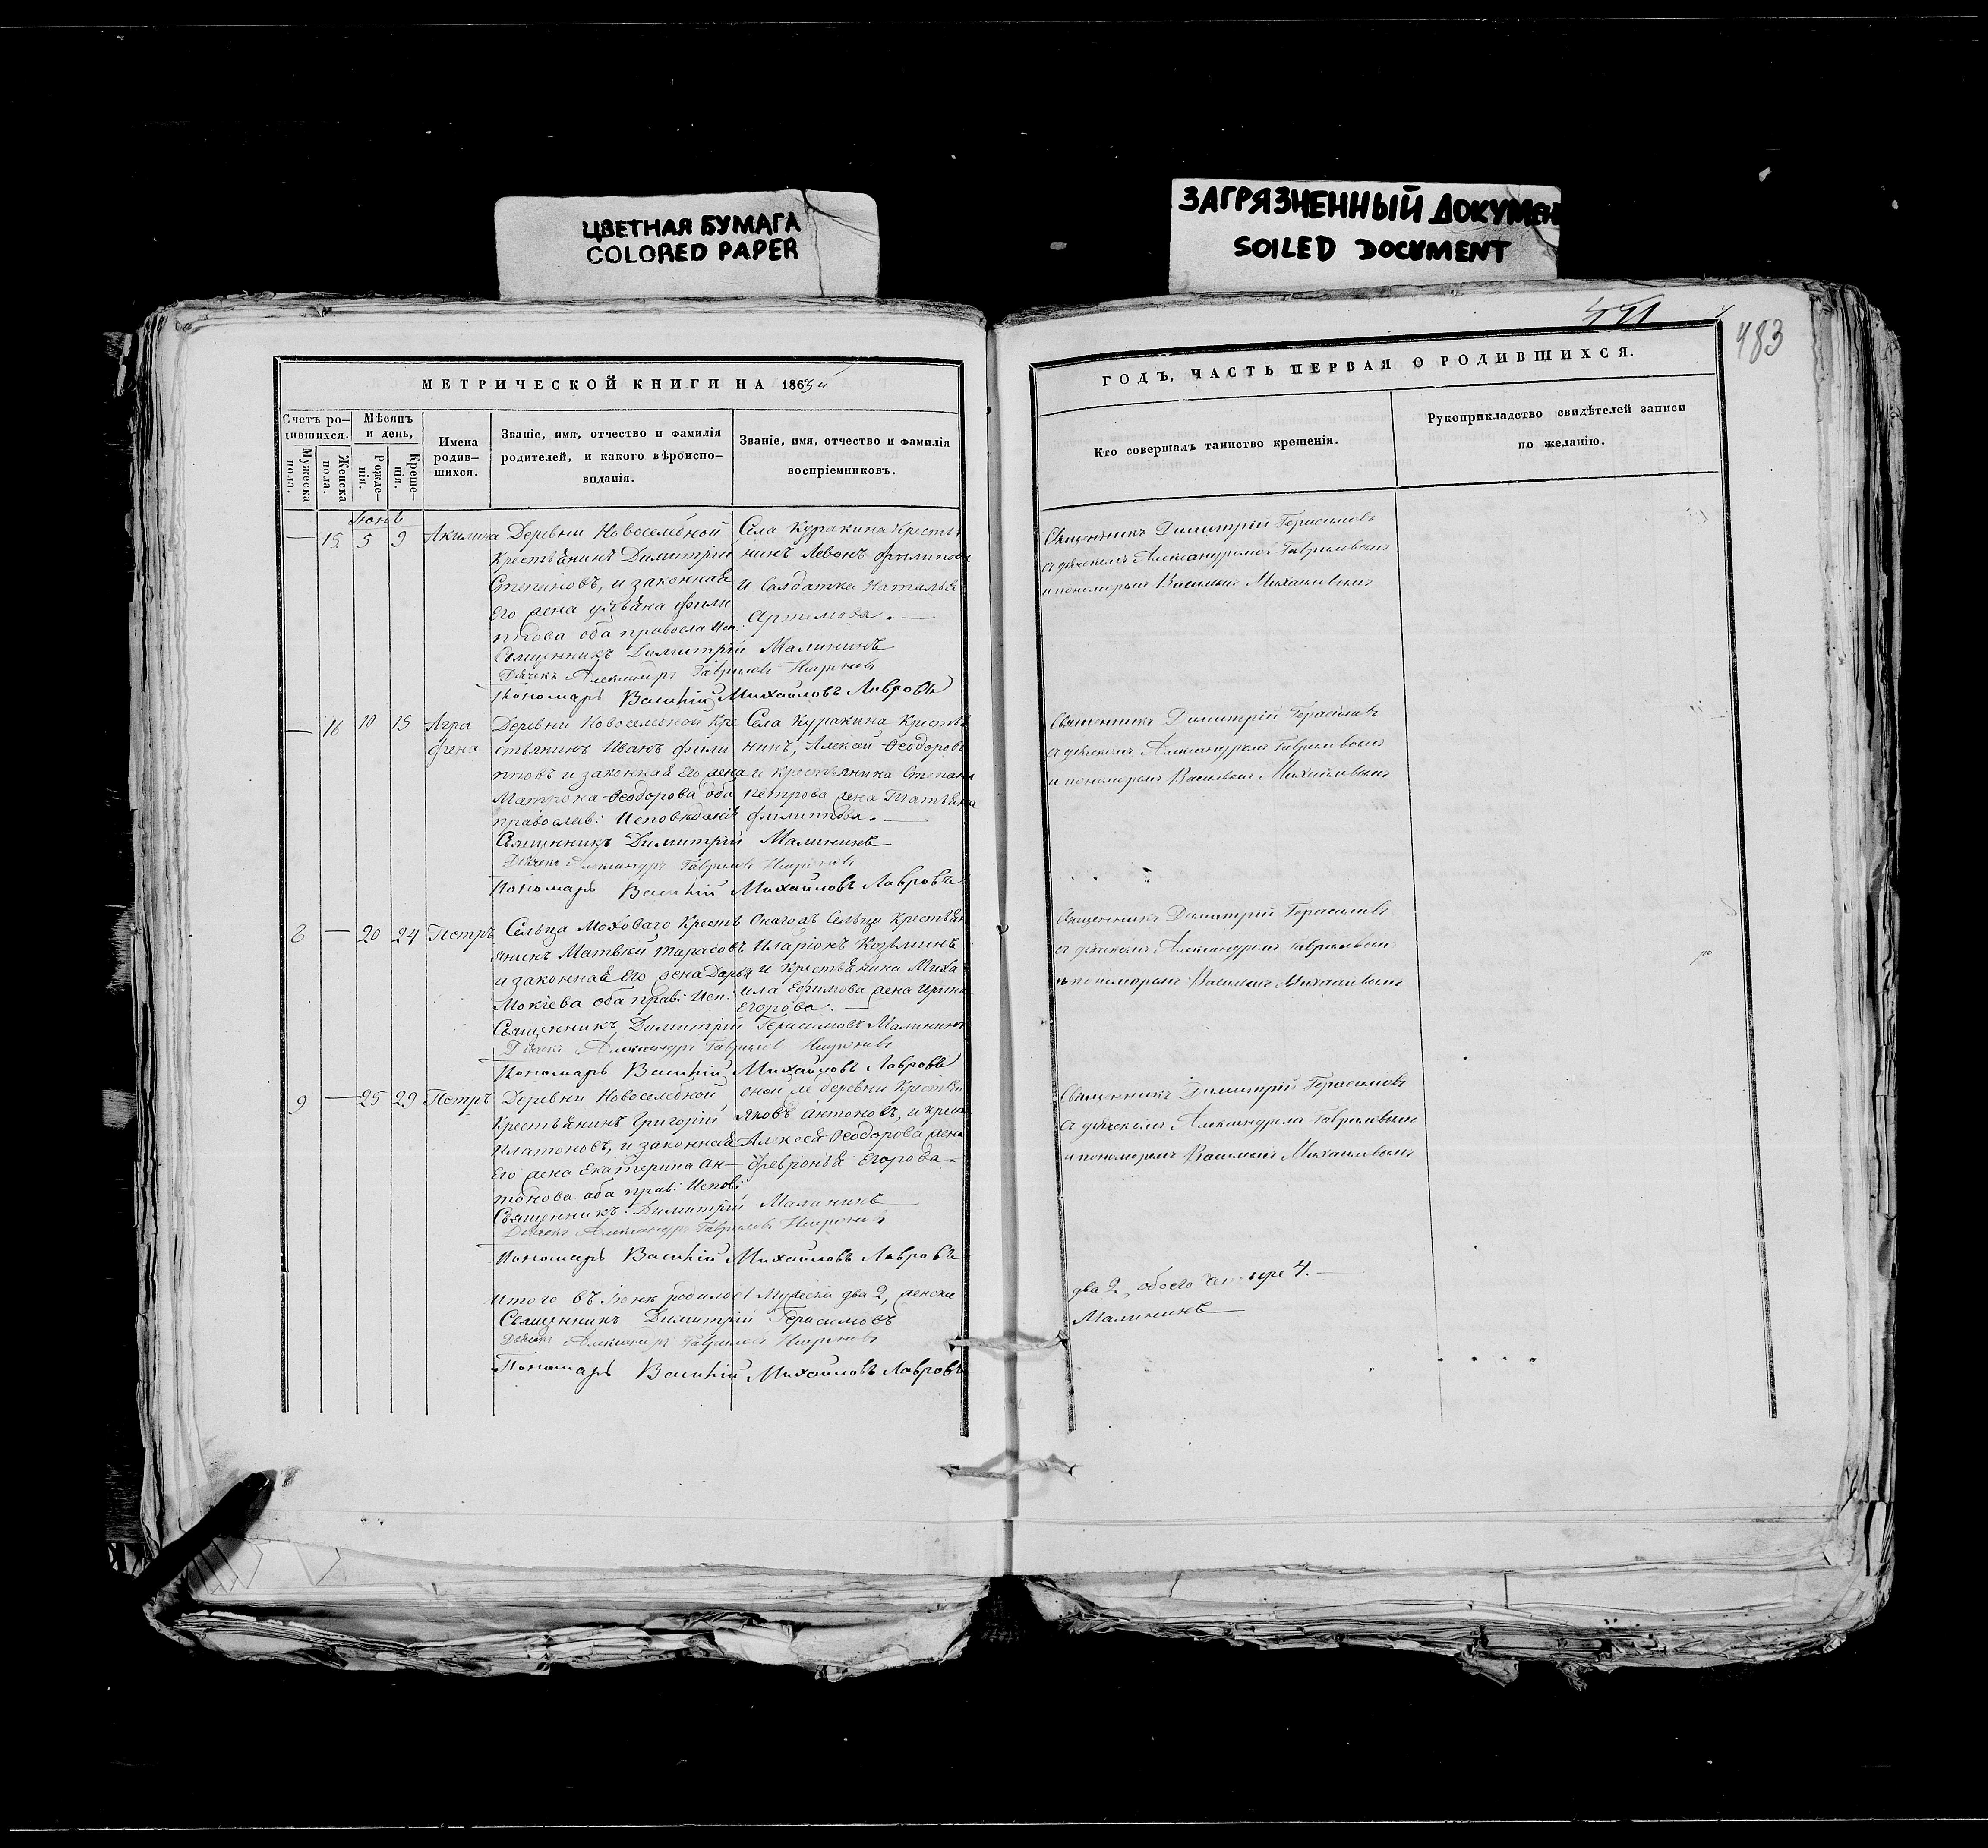 ЦВЕТНАЯ БУМАГА
COLORED PAPER
ЗАГРЯЗНЕННЫЙ ДОКУМЕН
SOILED DOCUMENT
483
МЕТРИЧЕСКОЙ КНИГИ НА 186
Счетъ ро-
дившихся.
Мужеска
пола.
Женска
пола.
Мѣсяцъ
и день,
Рожде-
нія.
Креще-
нія.
Имена
родив-
шихся.
Званіе, имя, отчество и фамилія
родителей, и какого вѣроиспо-
вѣданія.
Званіе, имя, отчество и фамилія
воспріемниковъ.
— 15 5 9 Акилина
Деревни Новоселебной
Крестьянинъ Димитрій
Степановъ, и законная
Его жена Фили
пова оба правосла Исп:
Села Куракина Крестья
нинъ Левонъ Филипов
и Салдатка Наталья
Артемова. —
Священникъ Димитрій Малининъ
Дьячекъ Александръ Гавриловъ
Пономарь Василій Михайловъ Лавровъ
— 16 10 15 Агра
фена
Деревни Новоселебной Кре
стьянинъ Иванъ Фили
пповъ и законная Его жена
Матрона Ѳеодорова оба
православ: Исповѣданія
Села Куракина Крестья
нинъ, Алексей Ѳеодоров
и крестьянина Степана
Петрова жена Татьяна
Филиппова. —
Священникъ Димитрій Малининъ
Дьячекъ Александръ Гавриловъ
Пономарь Василій Михайловъ Лавровъ
8 — 20 24 Петръ
Сельца Моховаго Кресть
янинъ Матвей Тарасовъ
и законная Его жена Дарья
Мокіева оба прав: Исп:
Онаго жъ Сельца Крестьян
Иларіонъ Козьминъ
и крестьянина Миха
ила Ефимова жена Ирина
Егорова. —
Священникъ Димитрій Герасимовъ Малининъ
Дьячекъ Александръ Гавриловъ
Пономарь Василій Михайловъ Лавровъ
9 — 25 29 Петръ
Деревни Новоселебной
Крестьянинъ Григорій
Платоновъ, и законная
Его жена Екатерина Ан—
тонова оба прав: Испов:
оной же деревни Крестья
Яковъ Антоновъ, и крест
Алексея Ѳеодорова жена
Февронья Егорова —
Священникъ Димитрій Малининъ
Дьячекъ Александръ Гавриловъ
Пономарь Василій Михайловъ Лавровъ
Итого въ родилось Мужеска два 2, женска
Священникъ Димитрій Герасимовъ
Дьячекъ Александръ Гавриловъ
Пономарь Василій Михайловъ Лавровъ
ГОДЪ, ЧАСТЬ ПЕРВАЯ О РОДИВШИХСЯ.
Кто совершалъ таинство крещенія.
Рукоприкладство свидѣтелей записи
по желанію.
Священникъ Димитрій Герасимовъ
съ дьячкомъ Александромъ Гавриловымъ
и пономоремъ Василіемъ Михайловымъ
Священникъ Димитрій Герасимовъ
съ дьячкомъ Александромъ Гавриловымъ
и пономоремъ Василіемъ Михайловымъ
Священникъ Димитрій Герасимовъ
съ дьячкомъ Александромъ Гавриловымъ
и пономоремъ Василіемъ Михайловымъ
Священникъ Димитрій Герасимовъ
съ дьячкомъ Александромъ Гавриловымъ
и пономоремъ Василіемъ Михайловымъ
два 2, обоего четыре 4. —
Малининъ